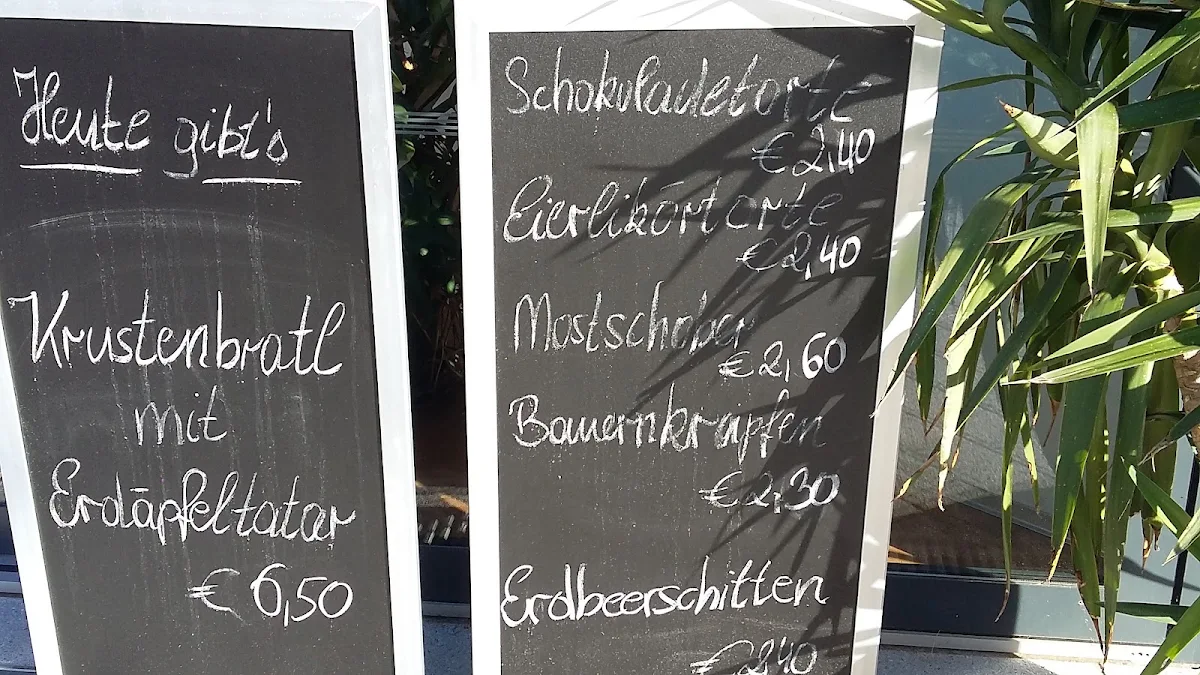 Heute gibt's
Krustenbratl
mit
Erdäpfeltatar
€ 6,50
Schokoladetorte
€ 2,40
Eierlikörtorte
€ 2,40
Mostschober
€ 2,60
Bauernkrapfen
€ 2,30
Erdbeerschitten
€ 2,40